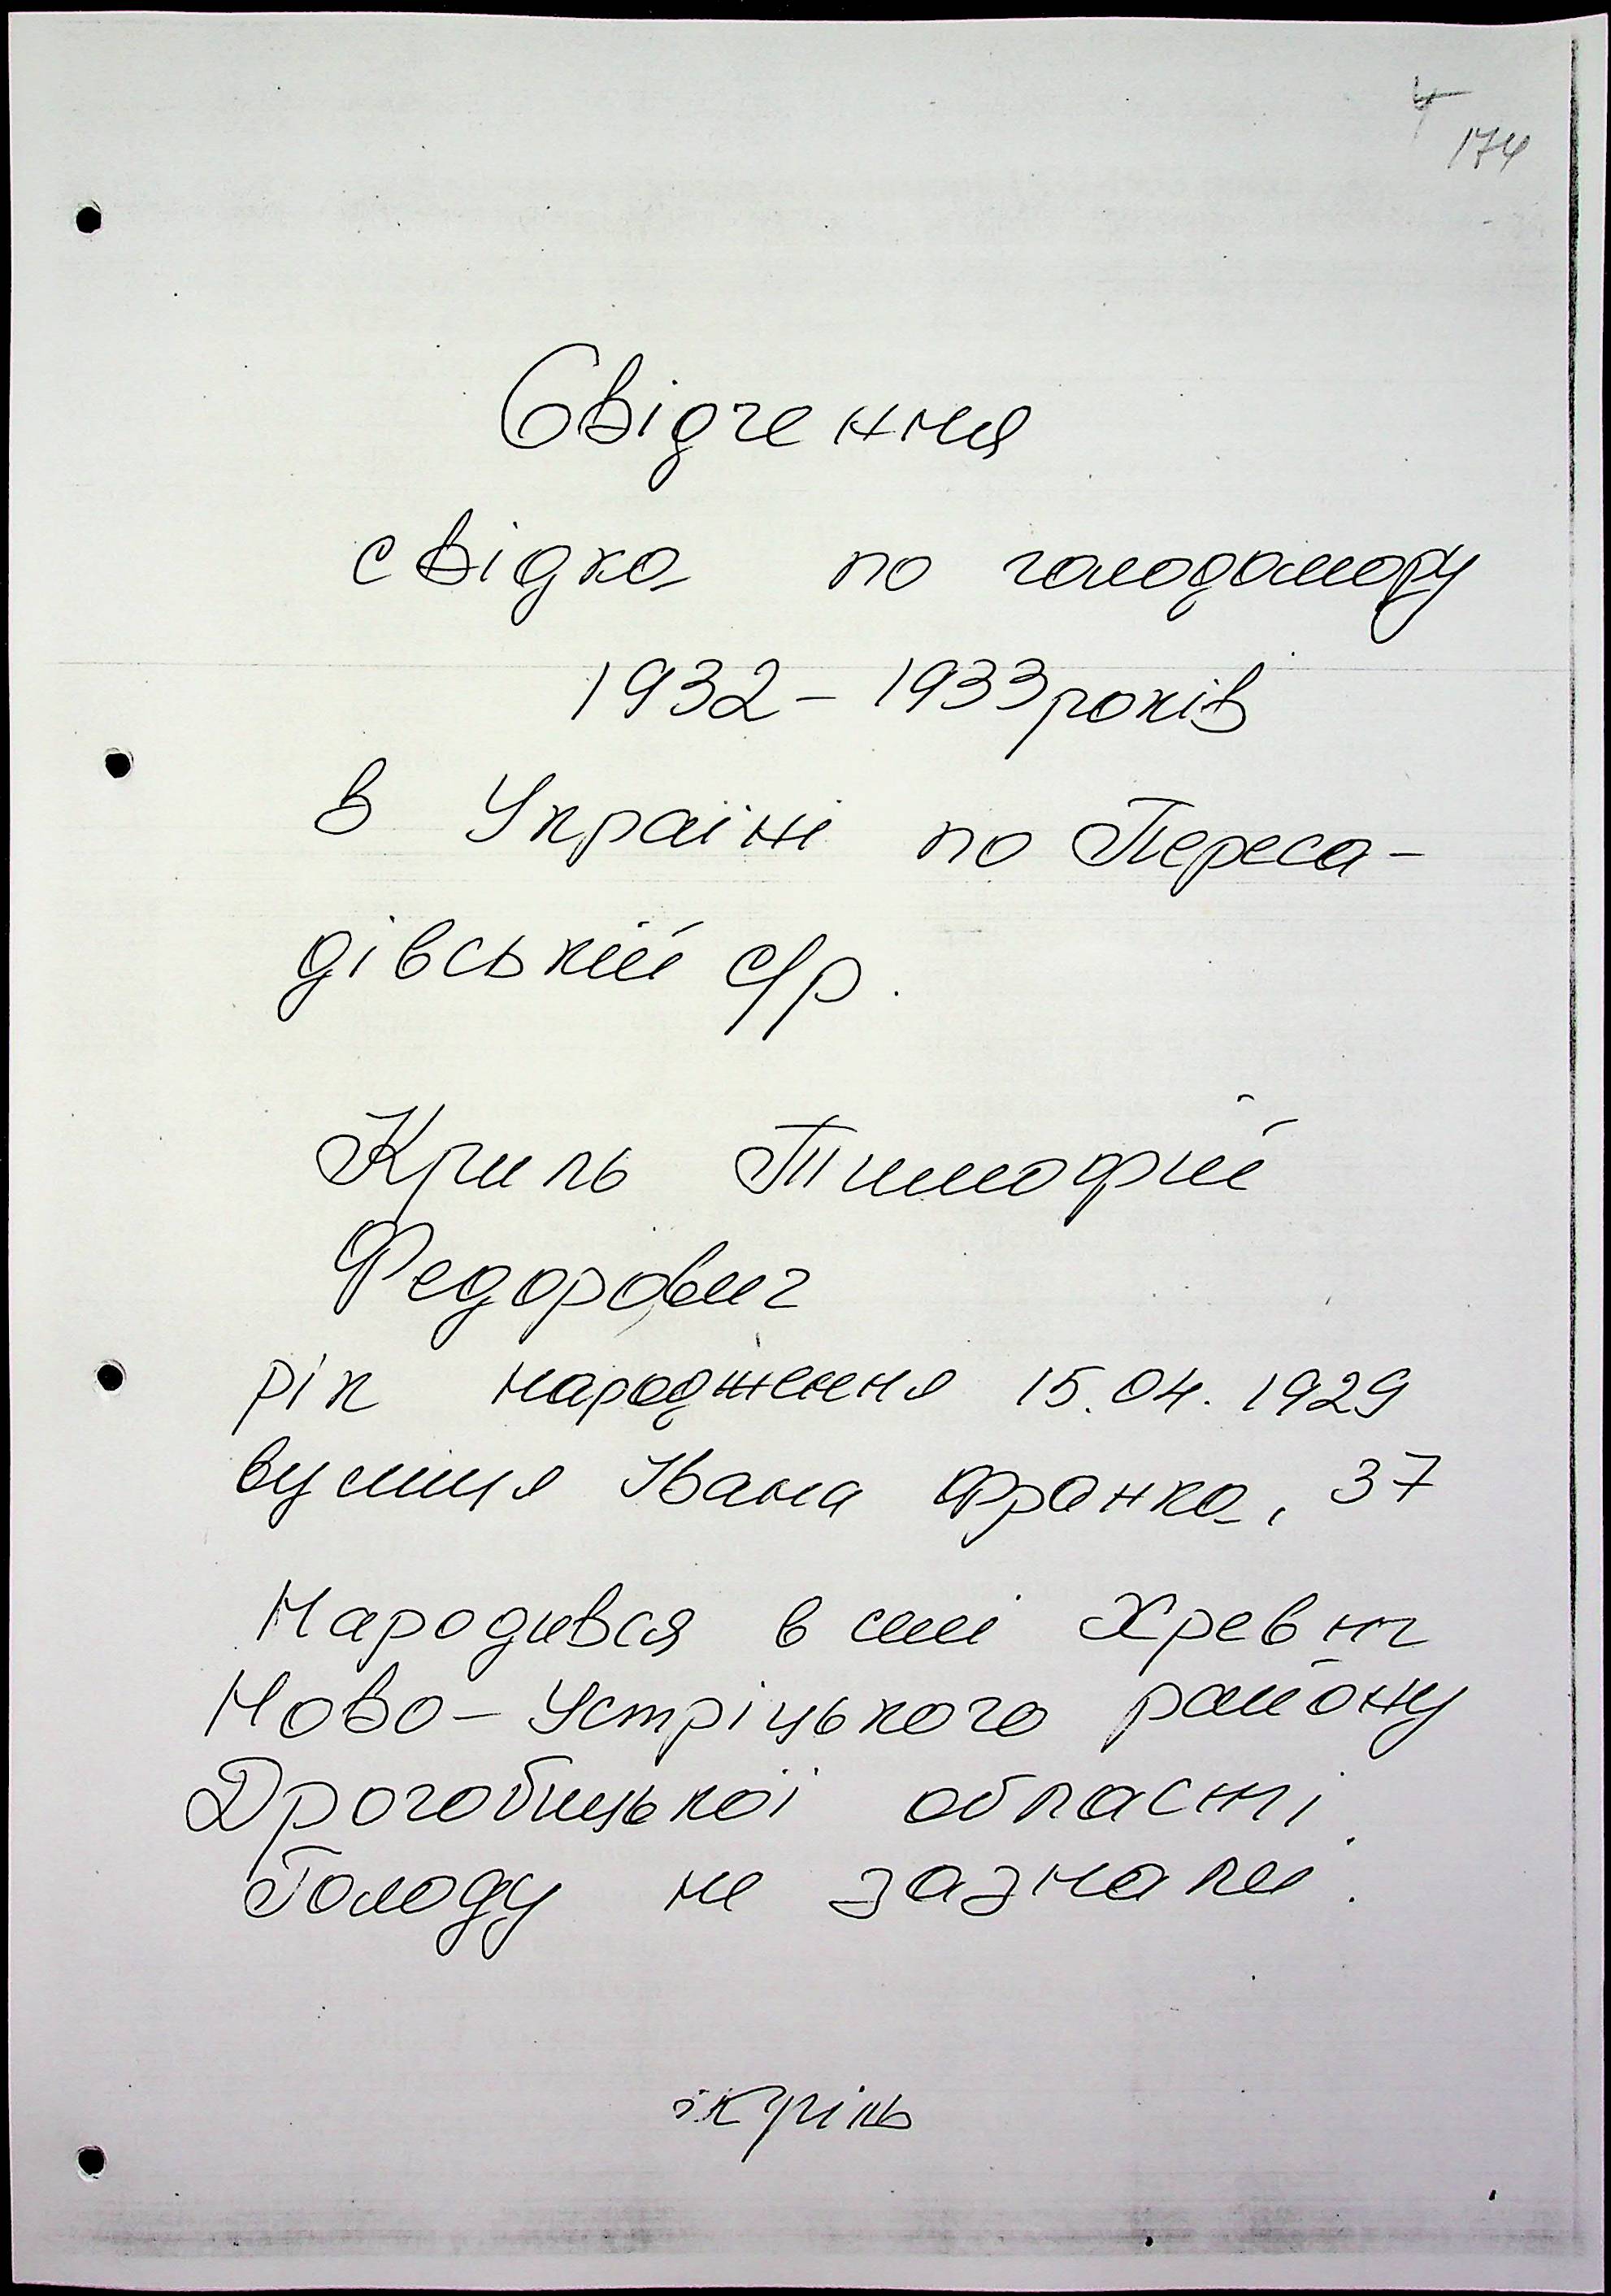 174
Свідчення
свідка по голодомору
1932 – 1933 років
в Україні по Переса-
дівській с/р.
Криль Тимофій
Федорович
рік народження 15.04.1929
вулиця Івана Франка, 37
Народився в селі
Ново-Устріцького району
Дрогобицької області.
Голоду не зазнали.